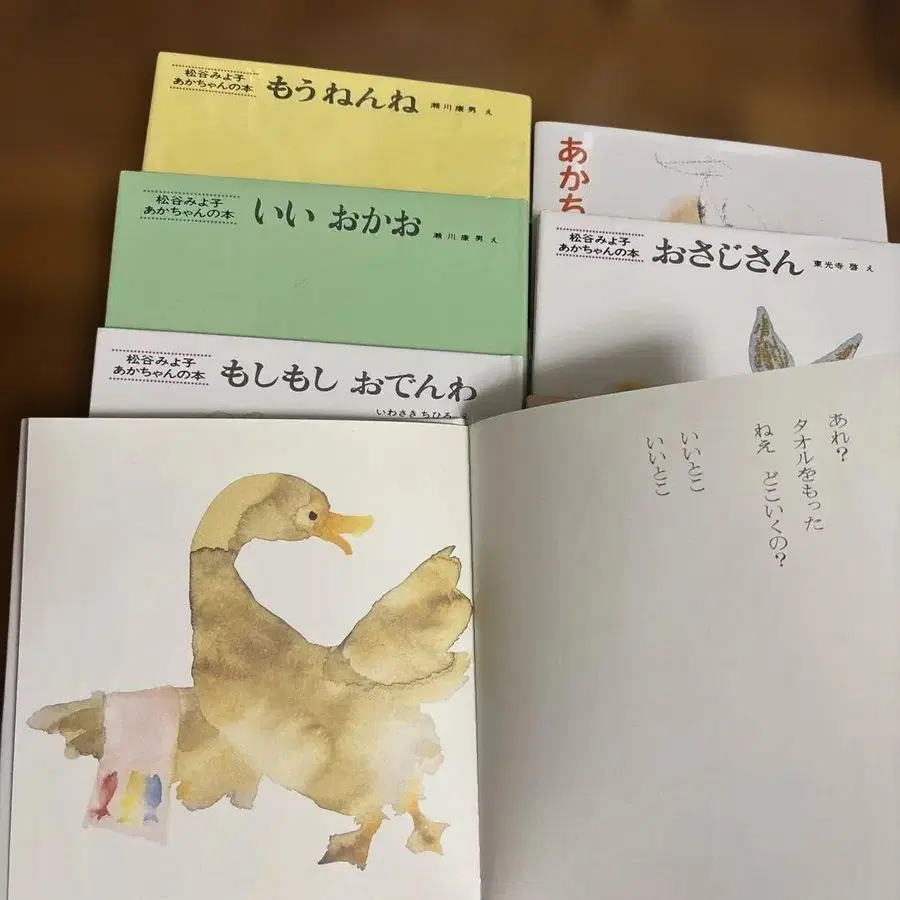 松谷みよ子
あかちゃんの本
もうねんね
瀬川康男 え
松谷みよ子
あかちゃんの本
いい おかお
瀬川康男 え
松谷みよ子
あかちゃんの本
もしもし おでんわ
いわさきちひろ え
あかち
松谷みよ子
あかちゃんの本
おさじさん
東光寺 啓 え
あれ?
タオルをもった
ねえ どこいくの?
いいとこ
いいとこ